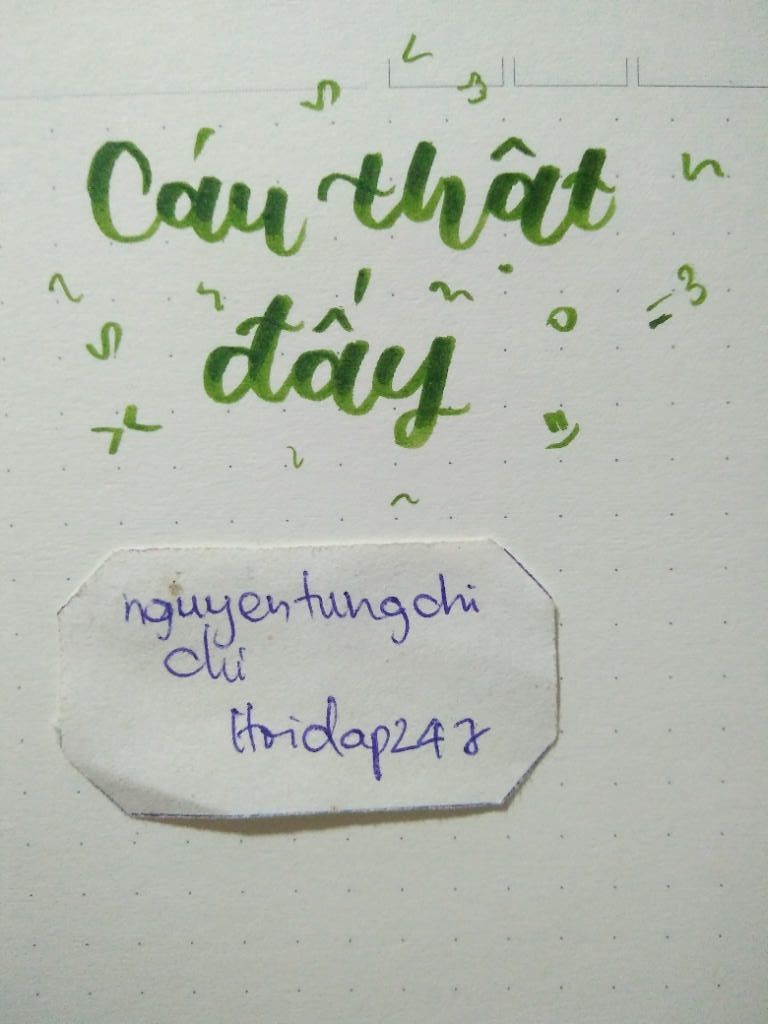 Cáu thật
đấy
nguyentungchi
chi
Hoidap247